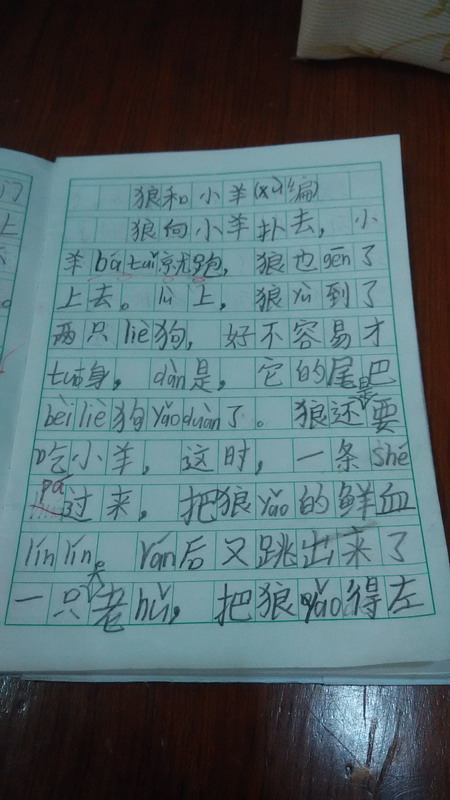 狼和小羊(xù编)
狼向小羊扑去，小
羊bá tuǐ就跑，狼也gēn了
上去。lù上，狼yù到了
两只liè狗，好不容易才
tuō身，dàn是，它的尾巴
bèi liè狗yǎo duàn了。狼还是要
吃小羊，这时，一条shé
pá过来，把狼yǎo的鲜血
lín lín。rán后又跳出来了
一只大老hǔ，把狼yǎo得左